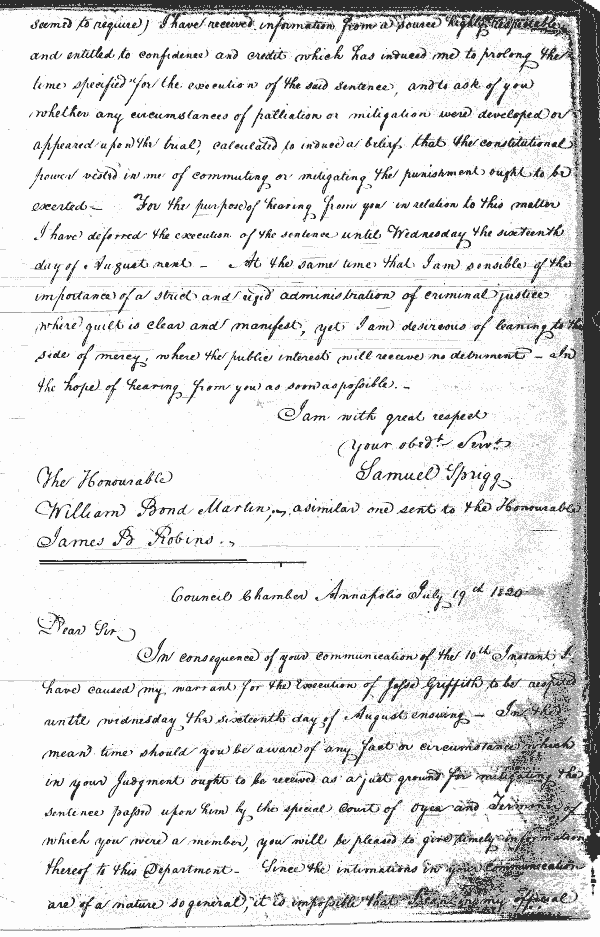 seemed to require) I have received information from a source highly respectable
and entitled to confidence and credit which has induced me to prolong the
time specified for the execution of the said sentence, and to ask of you
whether any circumstances of palliation or mitigation were developed or
appeared upon the trial, calculated to induce a belief, that the constitutional
power vested in me of commuting or mitigating the punishment ought to be
exerted — For the purpose of hearing from you in relation to this matter
I have deferred the execution of the sentence until Wednesday the sixteenth
day of August next — At the same time that I am sensible of the
importance of a strict and rigid administration of criminal justice
where guilt is clear and manifest, yet I am desireous of leaning to the
side of mercy, where the public interest will receive no detriment — In
the hope of hearing from you as soon as possible. —
I am with great respect
Your obedt. Servt.
Samuel Sprigg
The Honourable
William Bond Martin, a similar one sent to the Honourable
James B Robins.
Council Chamber Annapolis July 19th 1820
Dear Sir
In consequence of your communication of the 10th Instant I
have caused my warrant for the Execution of Jesse Griffith to be respited
until wednesday the sixteenth day of August ensuing — In the
mean time should you be aware of any fact or circumstance which
in your Judgment ought to be received as a just ground for mitigating the
sentence passed upon him by the special Court of Oyer and Terminer of
which you were a member, you will be pleased to give timely information
thereof to this Department — Since the intimations in your communication
are of a nature so general, it is impossible that I can in my official